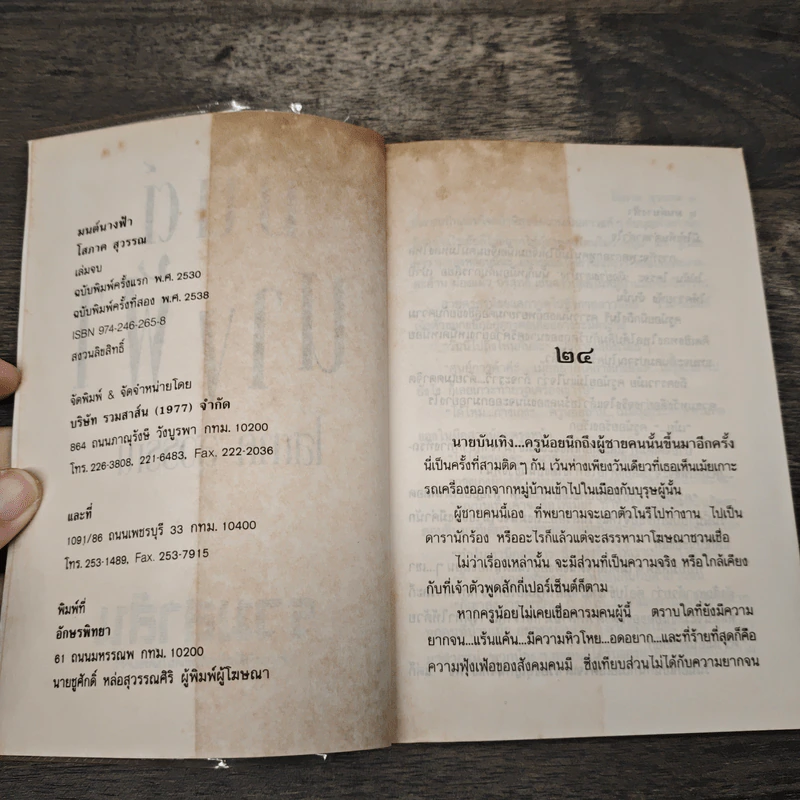 มนต์นางฟ้า
โสภาค สุวรรณ
เล่มจบ
ฉบับพิมพ์ครั้งแรก พ.ศ. 2530
ฉบับพิมพ์ครั้งที่สอง พ.ศ. 2538
ISBN 974-246-265-8
สงวนลิขสิทธิ์
จัดพิมพ์ & จัดจำหน่ายโดย
บริษัท รวมสาส์น (1977) จำกัด
864 ถนนภาณุรังษี วังบูรพา กทม. 10200
โทร. 226-3808, 221-6483, Fax. 222-2036
และที่
1091/86 ถนนเพชรบุรี 33 กทม. 10400
โทร. 253-1489, Fax. 253-7915
พิมพ์ที่
อักษรพิทยา
61 ถนนมหรรณพ กทม. 10200
นายชูศักดิ์ หล่อสุวรรณศิริ ผู้พิมพ์ผู้โฆษณา
๒๔
นายบันเทิง...ครูน้อยนึกถึงผู้ชายคนนั้นขึ้นมาอีกครั้ง
นี่เป็นครั้งที่สามติด ๆ กัน เว้นห่างเพียงวันเดียวที่เธอเห็นเม้ยเกาะ
รถเครื่องออกจากหมู่บ้านเข้าไปในเมืองกับบุรุษผู้นั้น
ผู้ชายคนนี้เอง ที่พยายามจะเอาตัวโนรีไปทำงาน ไปเป็น
ดารานักร้อง หรืออะไรก็แล้วแต่จะสรรหามาโฆษณาชวนเชื่อ
ไม่ว่าเรื่องเหล่านั้น จะมีส่วนที่เป็นความจริง หรือใกล้เคียง
กับที่เจ้าตัวพูดสักกี่เปอร์เซ็นต์ก็ตาม
หากครูน้อยไม่เคยเชื่อคารมคนผู้นี้ ตราบใดที่ยังมีความ
ยากจน...แร้นแค้น...มีความหิวโหย...อดอยาก...และที่ร้ายที่สุดก็คือ
ความฟุ้งเฟ้อของสังคมคนมี ซึ่งเทียบส่วนไม่ได้กับความยากจน